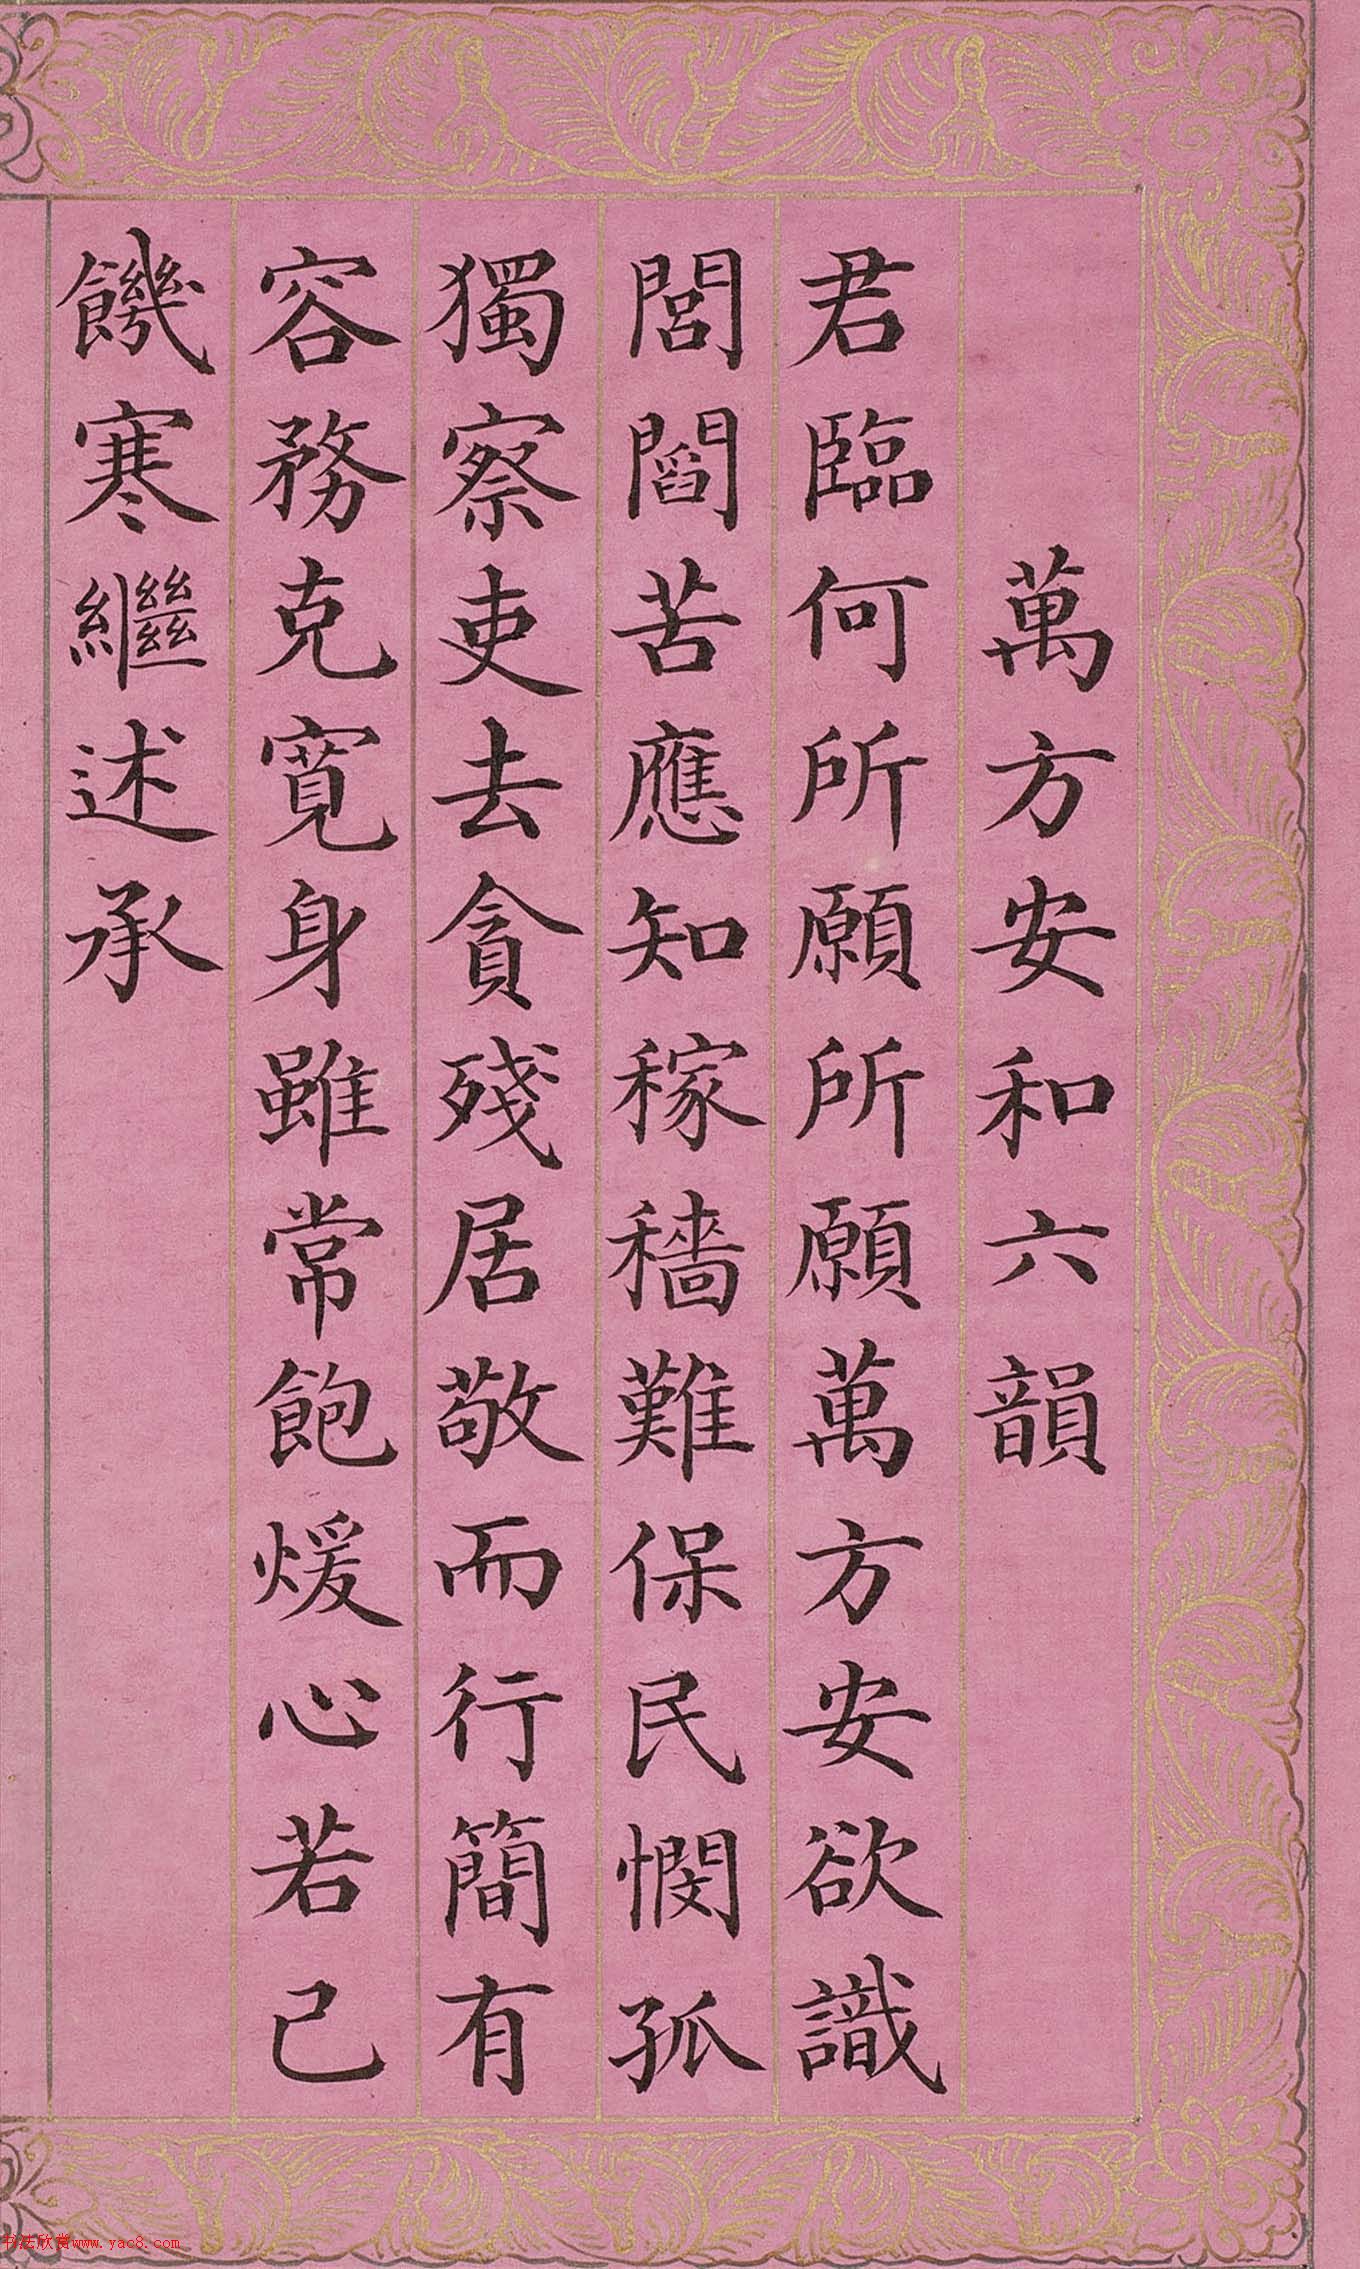 萬方安和六韻
君臨何所願所願萬方安欲識
閭閻苦應知稼穡難保民憫孤
獨察吏去貪殘居敬而行簡有
容務克寬身雖常飽煖心若己
饑寒繼述承
书法欣赏www.yac8.com